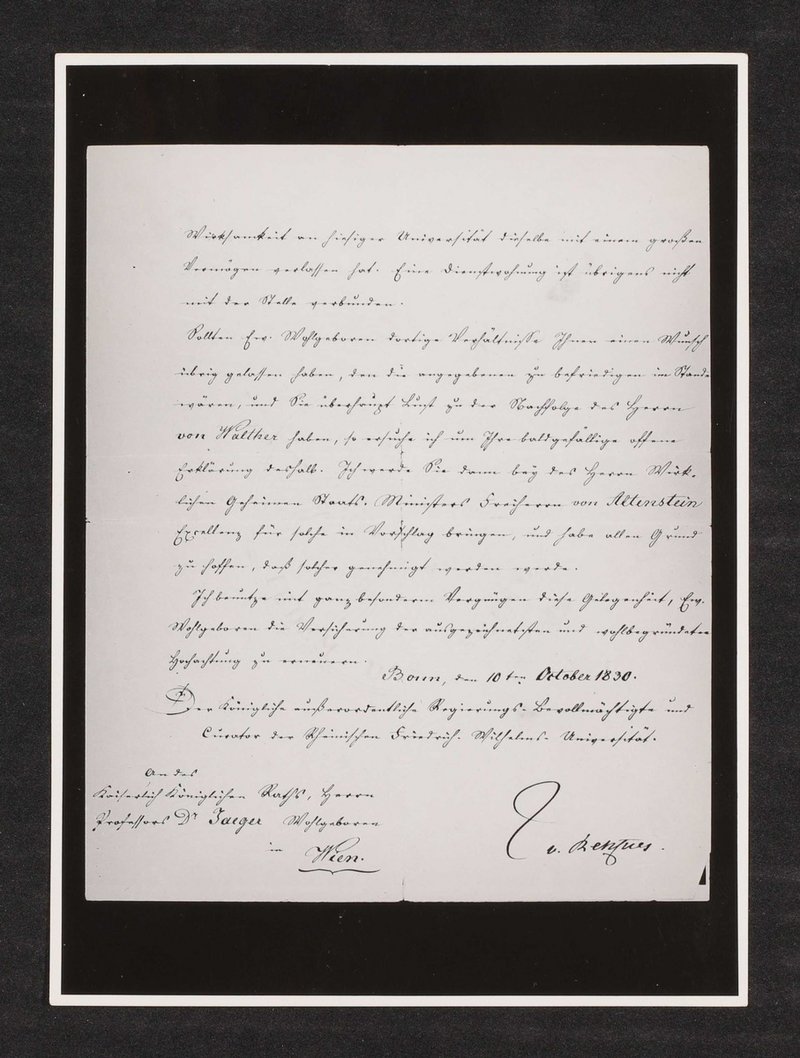 Wirksamkeit an hiesiger Universität dieselbe mit einem großen
Vermögen verlassen hat. Eine Dienstwohnung ist übrigens nicht
mit der Stelle verbunden.
Sollten Ew. Wohlgeboren dortige Verhältnisse Ihnen einen Wunsch
übrig gelassen haben, den die angegebenen zu befriedigen im Stande
wären, und Sie überhaupt Lust zu der Nachfolge des Herrn
von Walther haben, so ersuche ich um Ihre baldgefällige offene
Erklärung deshalb. Ich werde Sie dann bey des Herrn Wirk-
lichen Geheimen Staats-Ministers Freiherrn von Altenstein
Excellenz für solche in Vorschlag bringen, und habe allen Grund
zu hoffen, daß solcher genehmigt werden werde.
Ich benutze mit ganz besonderm Vergnügen diese Gelegenheit, Ew.
Wohlgeboren die Versicherung der ausgezeichnetsten und wohlbegründeten
Hochachtung zu erneuern.
Bonn, den 10ten October 1830.
Der Königliche außerordentliche Regierungs-Bevollmächtigte und
Curator der Rheinischen Friedrich-Wilhelms-Universität.
An des
Kaiserlich Königlichen Raths, Herrn
Professors Dr Jaeger Wohlgeboren
in
Wien.
v. Rehfues.